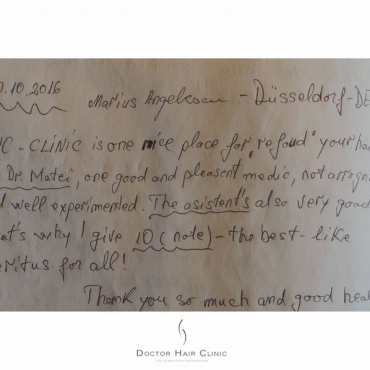 0.10.2016
Marius Angelescu - Düsseldorf-DE
C-CLINIC is one nice place for "refoud" your ha
Dr. Matei, one good and pleasent medic, not arrogn
d well experimented. The asistent's also very good
at's why I give 10 (note) - the best - like
eritus for all!
Thank you so much and good heal
DOCTOR HAIR CLINIC